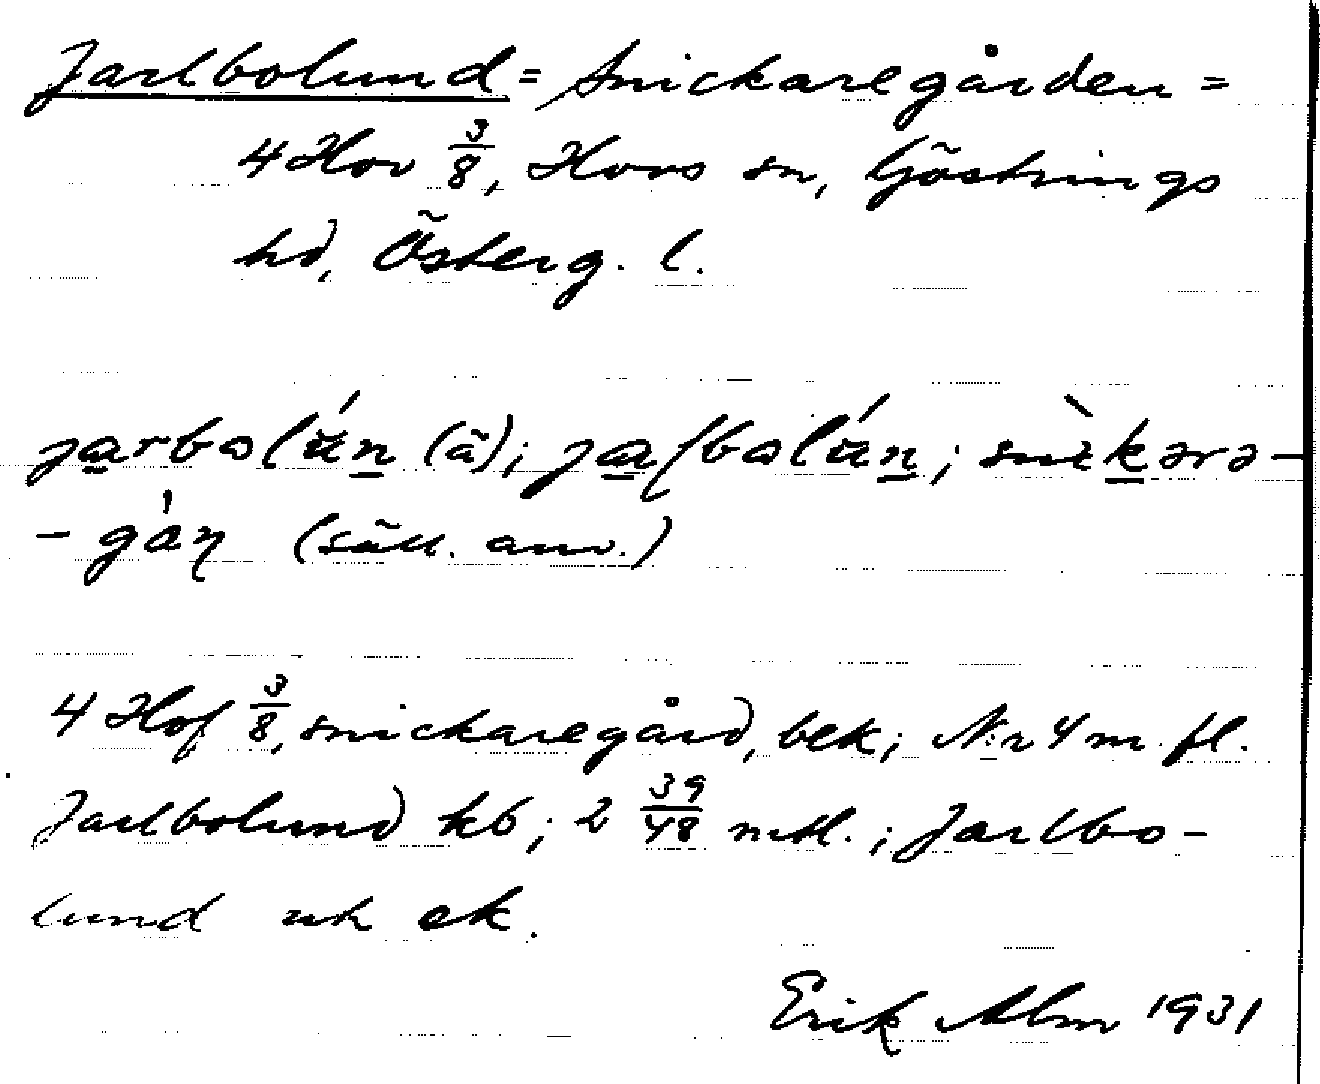 Jarlbolund = Snickaregården =
4 Hov 3/8, Hovs sn, Göstrings
hd, Österg. l.
(ä);
(säll. anv.)
4 Hof 3/8, snickaregård, bek; N:r 4 m. fl.
Jarlbolund kb; 2 39/48 mtl.; Jarlbo-
lund uh ek.
Erik Alm 1931